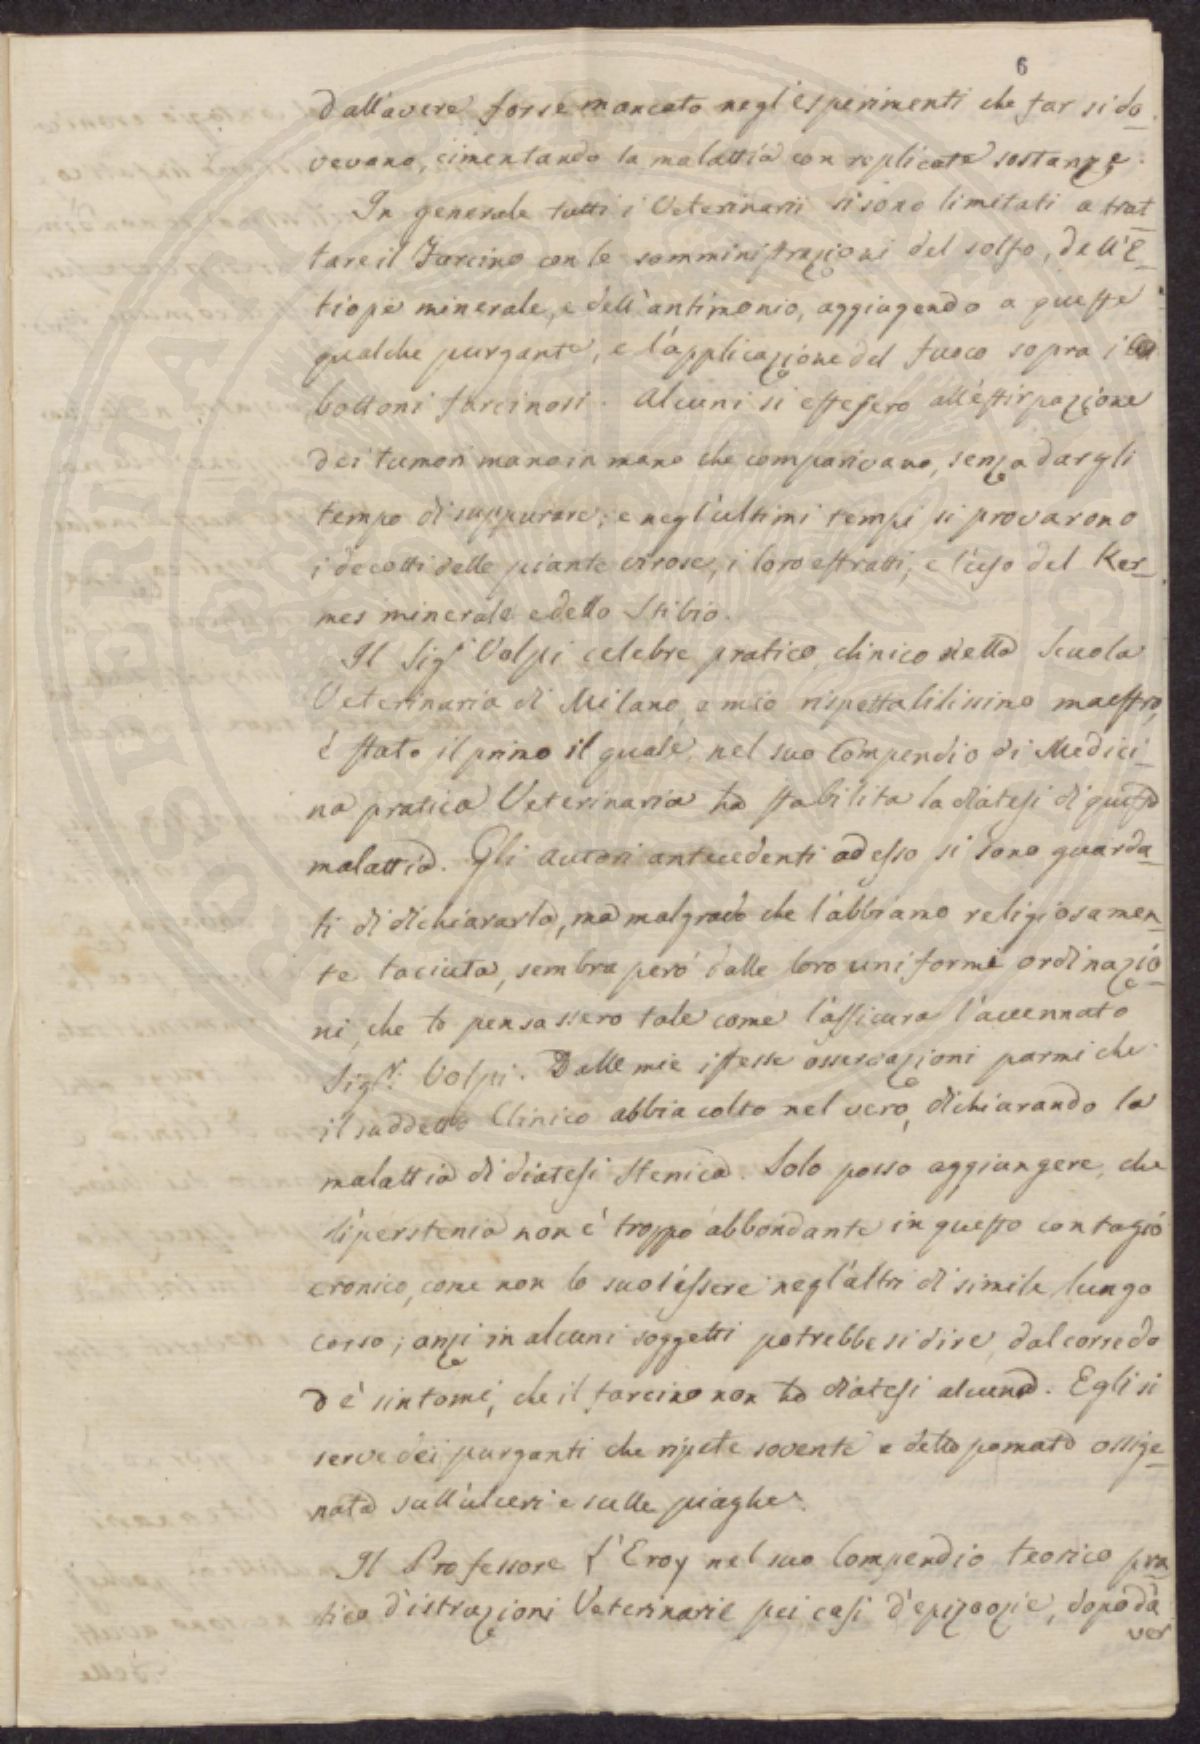 6
dall'avere forse mancato negl'esperimenti che far si do-
vevano, cimentando la malattia con replicate sostanze.
In generale tutti i Veterinarii si sono limitati a trat-
tare il Farcino con le somministrazioni del solfo, dell'E-
tiope minerale, e dell'antimonio, aggiugendo a queste
qualche purgante, e l'applicazione del fuoco sopra i
bottoni farcinosi. Alcuni si estesero all'estirpazione
dei tumori mano in mano che comparivano, senza dargli
tempo di suppurare; e negl'ultimi tempi si provarono
i decotti delle piante virose, i loro estratti, e l'uso del Ker-
mes minerale e dello Stibio.
Il Sigr. Volpi celebre pratico clinico nella Scuola
Veterinaria di Milano, e mio rispettabilissimo maestro,
è stato il primo il quale nel suo Compendio di Medici-
na pratica Veterinaria ha stabilita la diatesi di questa
malattia. Gli autori antecedenti ad esso si sono guarda-
ti di dichiararla, ma malgrado che l'abbiano religiosamen-
te taciuta, sembra però dalle loro uniformi ordinazio-
ni, che la pensassero tale come l'assicura l'accennato
Sigr. Volpi. Dalle mie istesse osservazioni parmi che
il suddetto Clinico abbia colto nel vero, dichiarando la
malattia di diatesi Stenica. Solo posso aggiungere, che
l'iperstenia non è troppo abbondante in questo contagio
cronico, come non lo suol essere negl'altri di simile lungo
corso; anzi in alcuni soggetti potrebbesi dire, dal corredo
dè sintomi, che il farcino non ha diatesi alcuna. Egli si
serve dei purganti che ripete sovente e della pomata ossige-
nata sull'ulceri e sulle piaghe.
Il Professore L'Eroy nel suo Compendio teorico pra-
tico d'istruzioni Veterinarie pei casi d'epizoozie, dopo d'a
ver